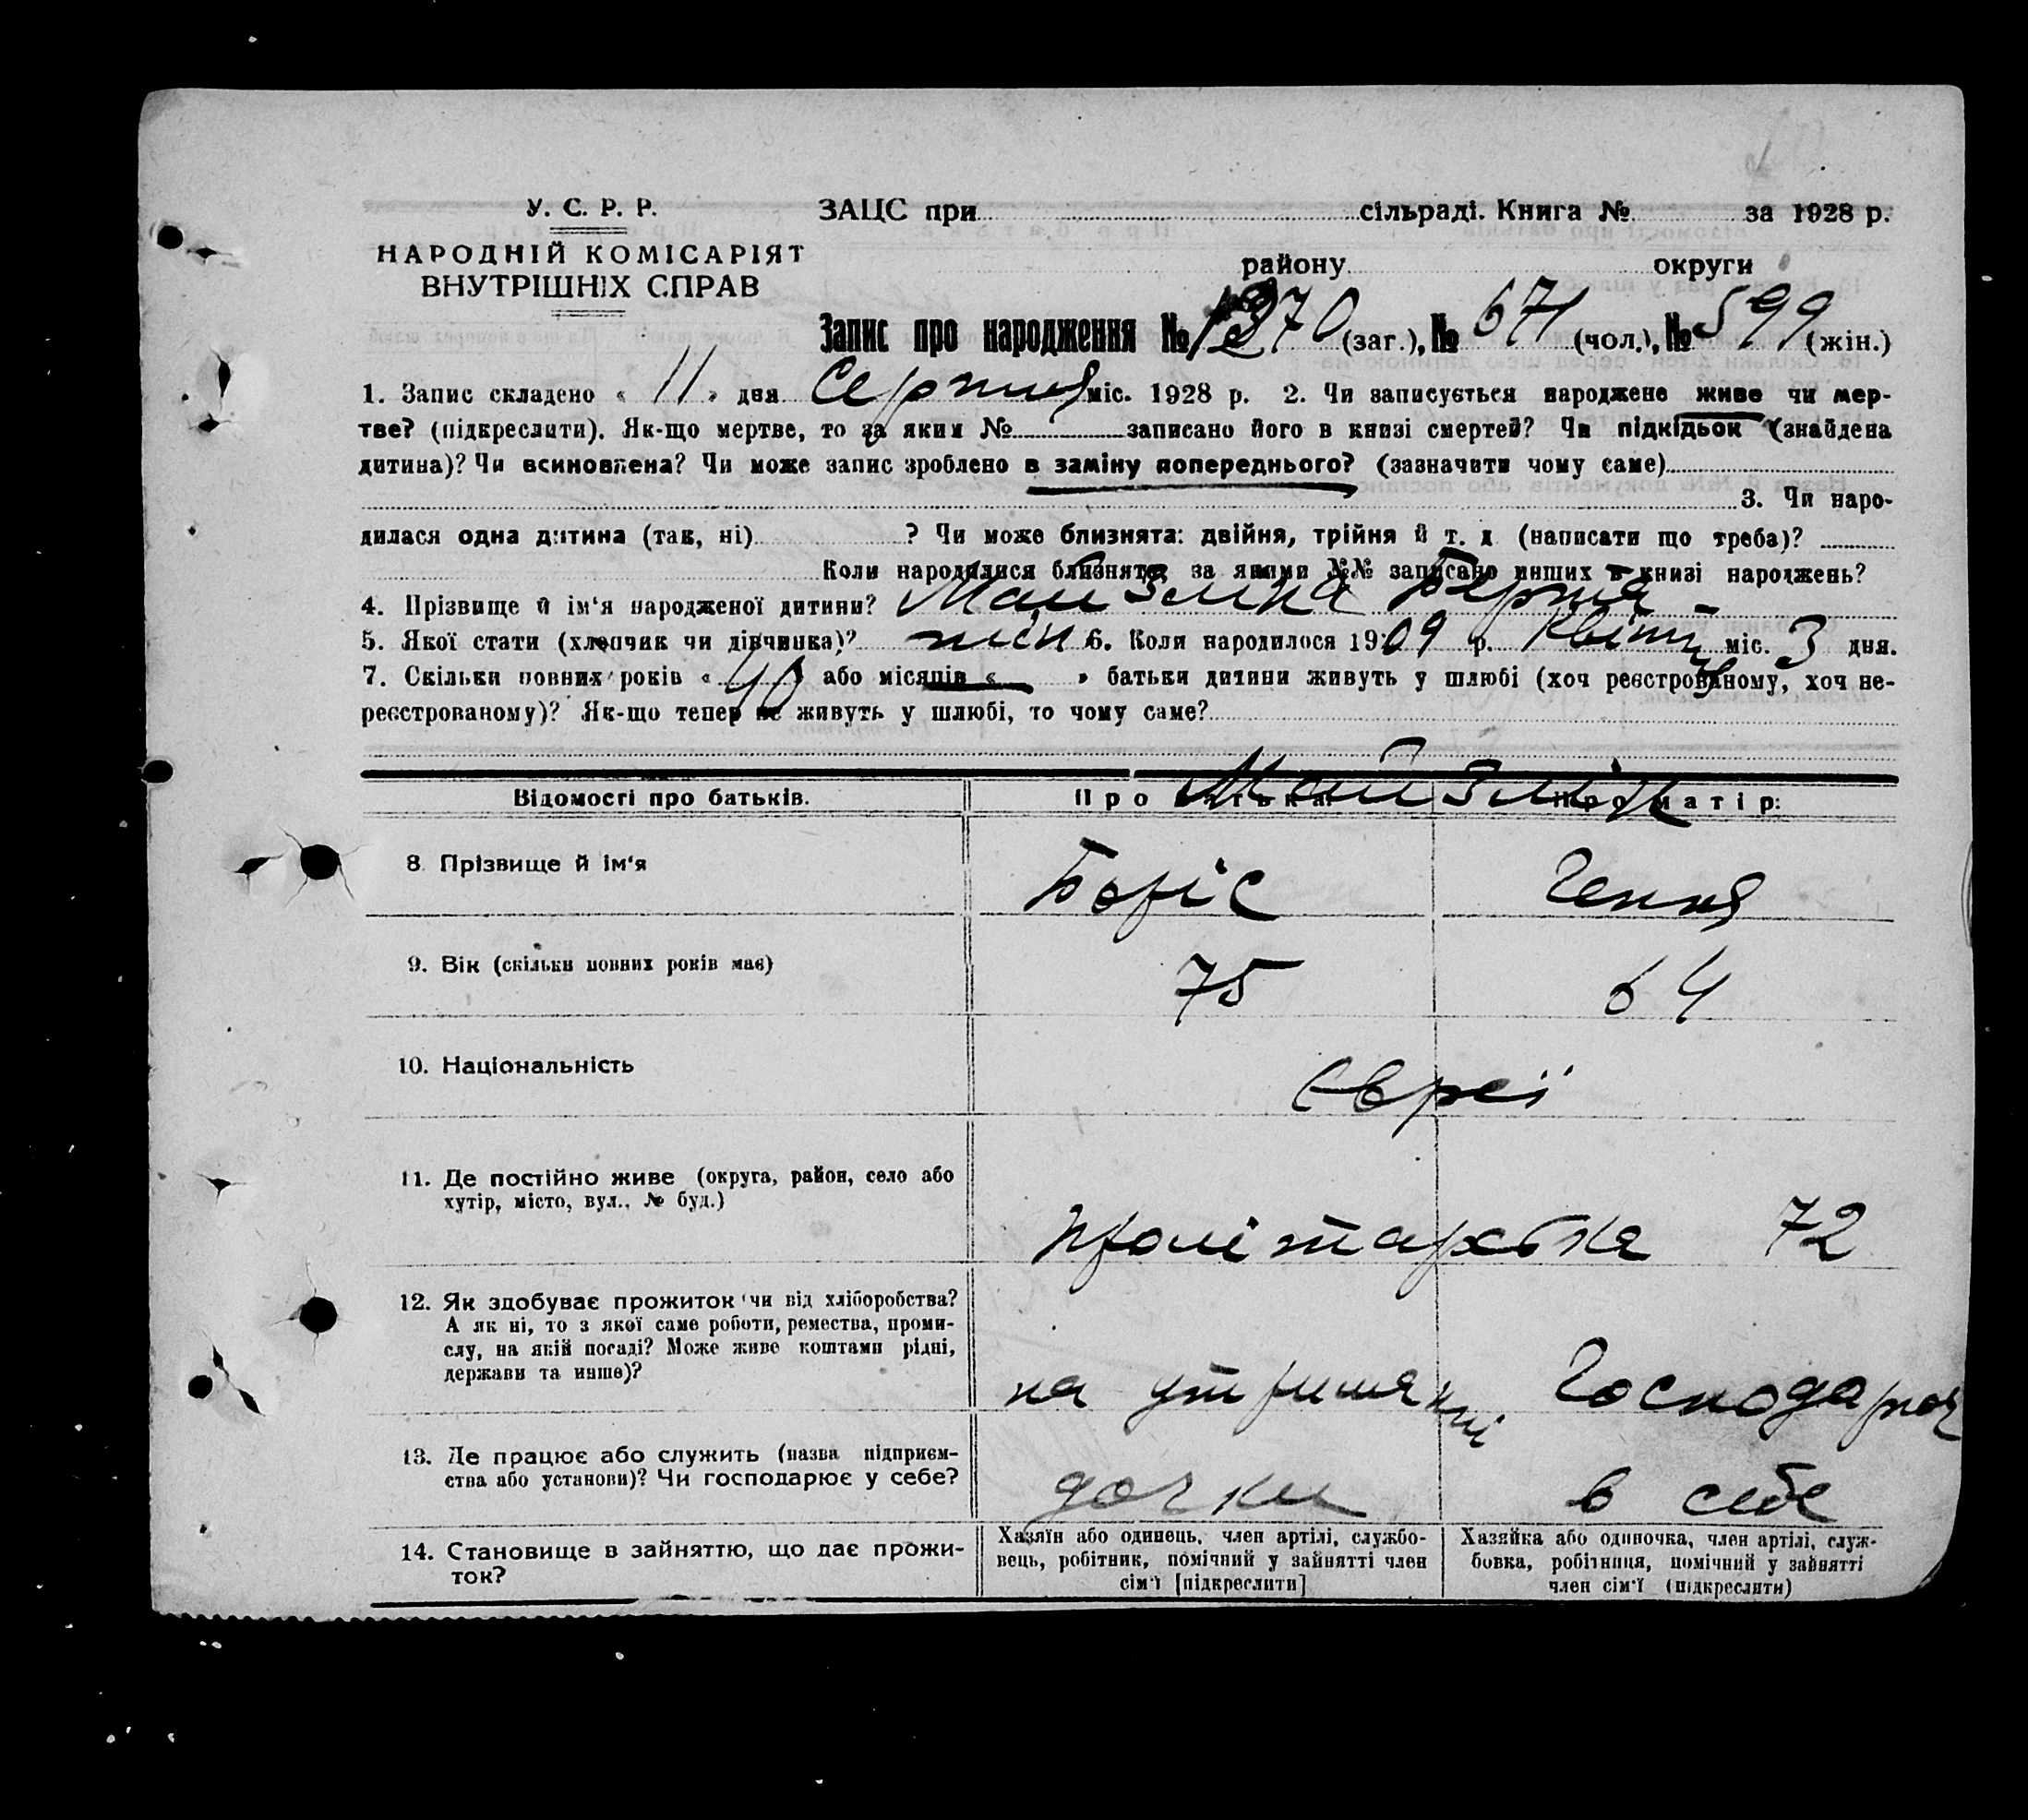 У. С. Р. Р.
НАРОДНІЙ КОМІСАРІЯТ
ВНУТРІШНІХ СПРАВ
ЗАЦС при сільраді. Книга № за 1928 р.
району округи
Запис про народження № 1270 (заг.), № 671 (чол.), № 599 (жін.)
1. Запис складено « 11 » дня Серпня міс. 1928 р. 2. Чи записується народжене живе чи мер-
тве? (підкреслити). Як-що мертве, то за яким № записано його в книзі смертей? Чи підкідьок (знайдена
дитина)? Чи всиновлена? Чи може запис зроблено в заміну попереднього? (зазначити чому саме)
3. Чи наро-
дилася одна дитина (так, ні) ? Чи може близнята: двійня, трійня й т. д (написати що треба)?
Коли народилися близнята, за якими №№ записано инших в книзі народжень?
4. Прізвище й ім‘я народженої дитини? Майзліна Берта -
5. Якої стати (хлопчик чи дівчинка)? жін 6. Коли народилося 1909 р. Квітня міс. 3 дня.
7. Скільки повних років « 40 » або місяців « » батьки дитини живуть у шлюбі (хоч реєстрованому, хоч не-
реєстрованому)? Як-що тепер не живуть у шлюбі, то чому саме?
Майзлін
Відомості про батьків. Про батька: Про матір:
8. Прізвище й ім‘я Боріс Геня
9. Вік (скільки повних років має) 75 64
10. Національність Євреї
11. Де постійно живе (округа, район, село або
хутір, місто, вул., № буд.)
Пролітарська 72
12. Як здобуває прожиток чи від хліборобства?
А як ні, то з якої саме роботи, ремества, проми-
слу, на якій посаді? Може живе коштами рідні,
держави та инше)?
на утриманні Господарює
13. Де працює або служить (назва підприєм-
ства або установи)? Чи господарює у себе?
дочки в себе
14. Становище в зайняттю, що дає прожи-
ток?
Хазяїн або одинець, член артілі, службо-
вець, робітник, помічний у зайнятті член
сім‘ї [підкреслити]
Хазяйка або одиночка, член артілі, служ-
бовка, робітниця, помічний у зайнятті
член сім‘ї (підкреслити)